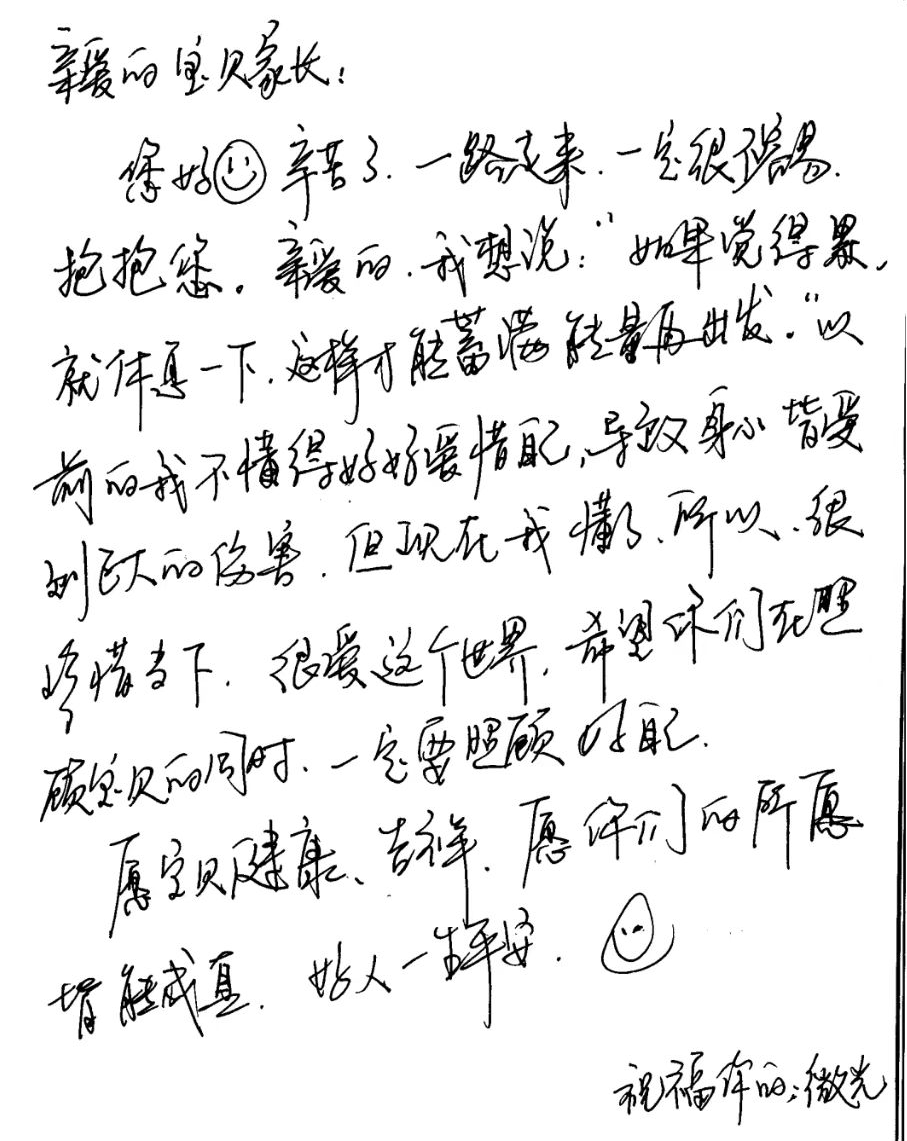 亲爱的宝贝家长:
您好 辛苦了.一路走来.一定很不容易.
抱抱您。亲爱的.我想说:"如果觉得累,
就休息一下.这样才能蓄满能量再出发."以
前的我不懂得好好爱惜自己,导致身心皆受
到巨大的伤害.但现在我懂了.所以.很
珍惜当下.很爱这个世界.希望你们在照
顾宝贝的同时.一定要照顾好自己.
愿宝贝健康、吉祥.愿你们的所愿
皆能成真.好人一生平安.
祝福你的:微光